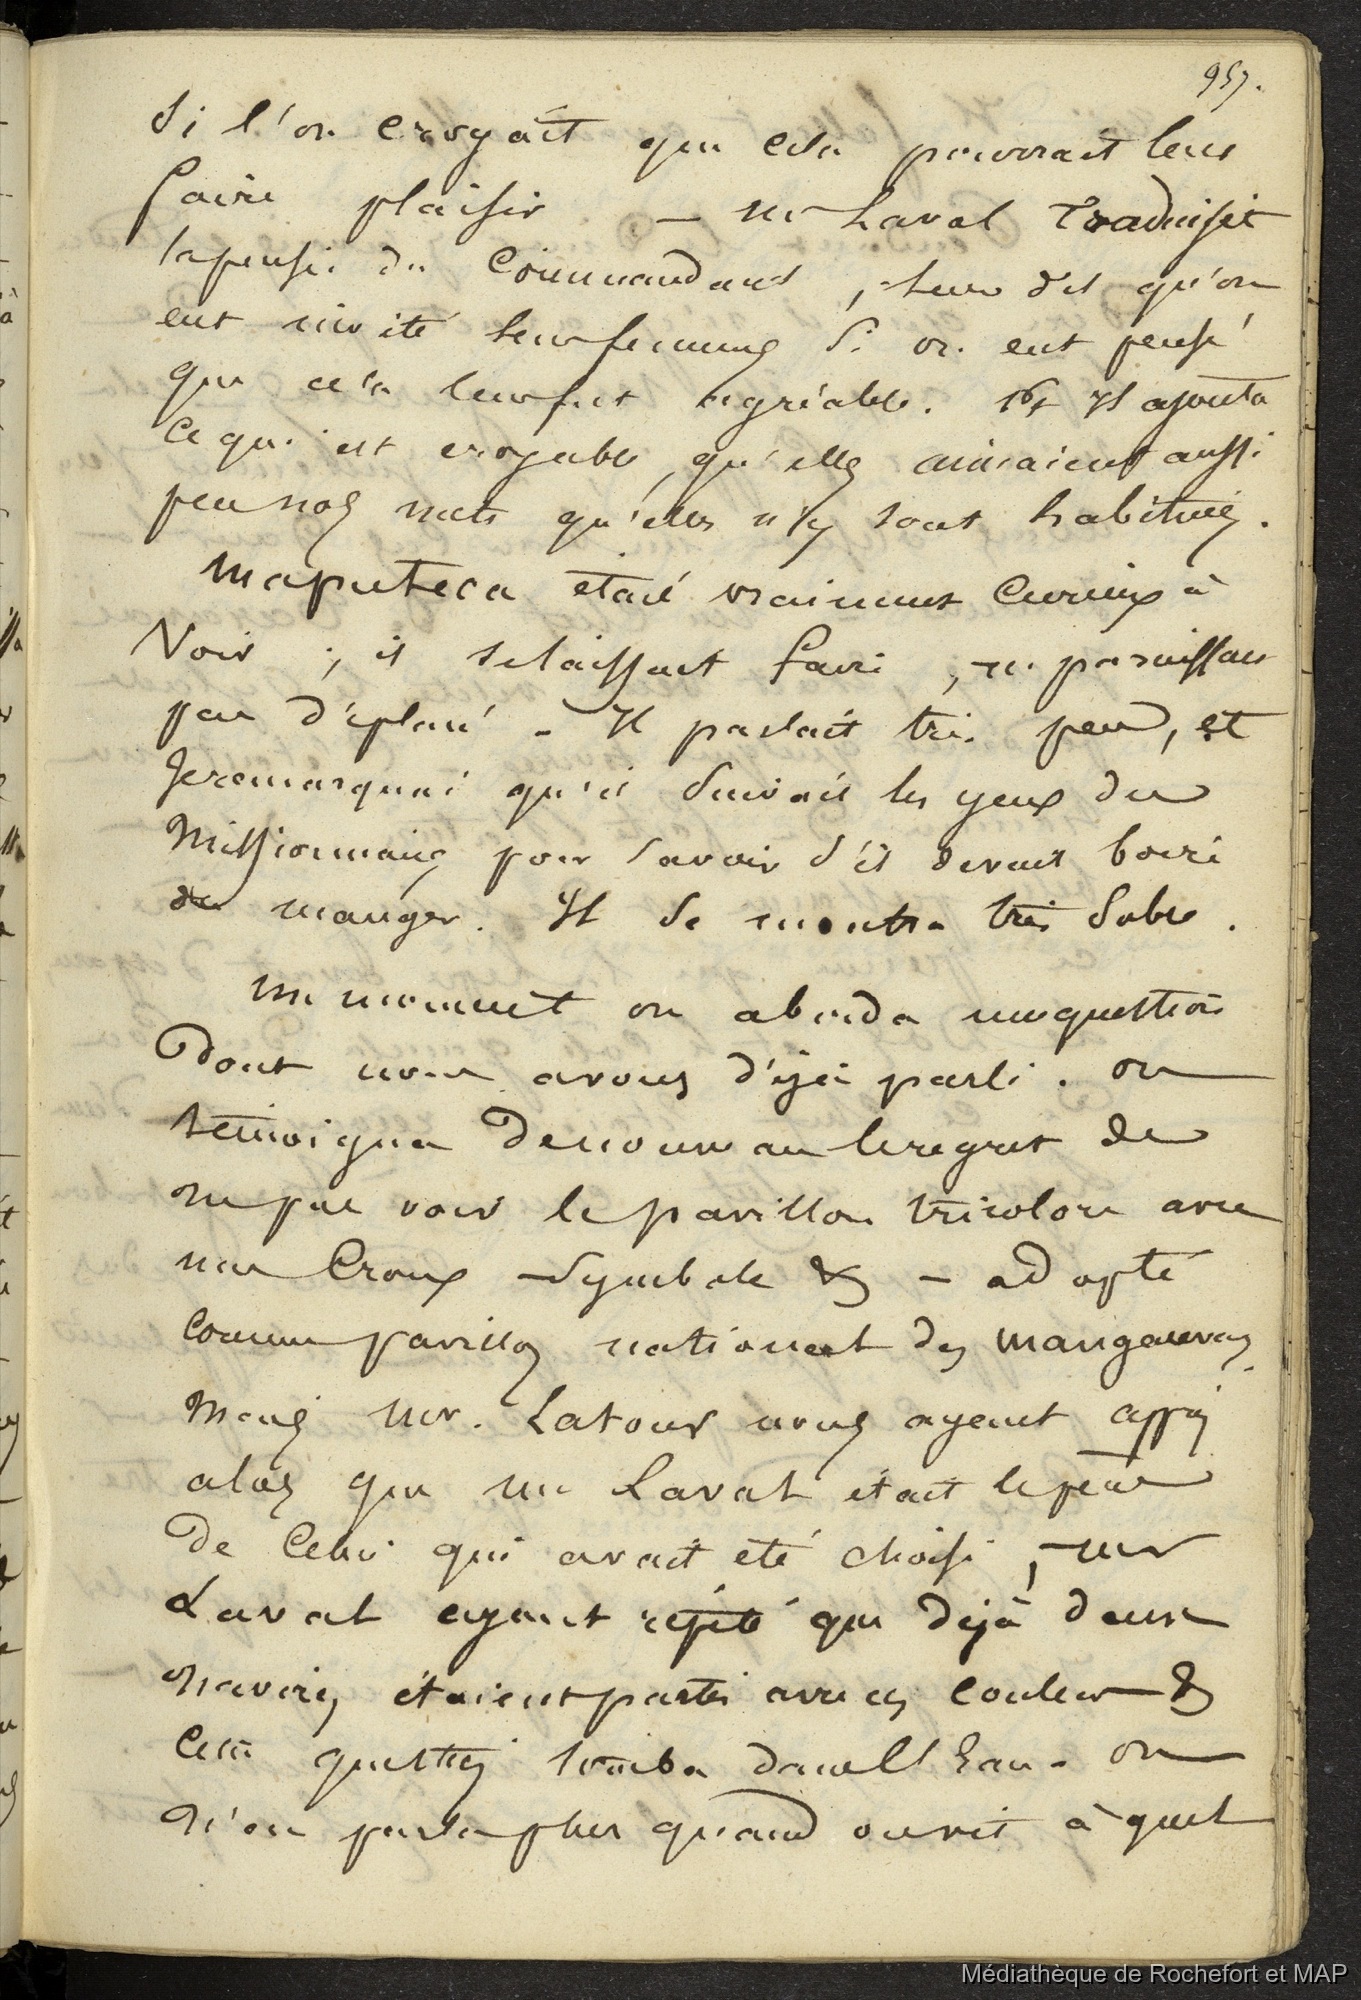 957.
Si l'on croyait que cela pourrait leur
faire plaisir — Mr Laval traduisit
la pensée du Commandant, leur dit qu'on
eut invité leurs femmes Si on eut pensé
que cela leur fut agréable. Il ajouta
ce qui est croyable, qu'elles aimaient aussi
peu nos mets qu'elles n'y sont habituées.
Maputeoa était vraiment curieux à
Voir ; il se laissait faire, ne paraissant
pas déplacé - Il parlait très peu, et
Je remarquai qu'il suivait les yeux des
Missionnaires pour savoir s'il devait boire
ou manger. Il se montra très sobre.
Un moment on aborda une question
Dont nous avons déjà parlé. On
témoigna de nouveau le regret de
ne pas voir le pavillon tricolore avec
une Croix - Symbole & - adopté
comme pavillon national des Mangareviens.
Mais Mr. Latour nous ayant appris
alors que Mr Laval était le père
De celui qui avait été choisi, Mr
Laval ayant répété que déjà deux
navires étaient partis avec ces couleurs &
Cette question tomba dans l'Eau. On
N'en parla plus quand on vit à quel